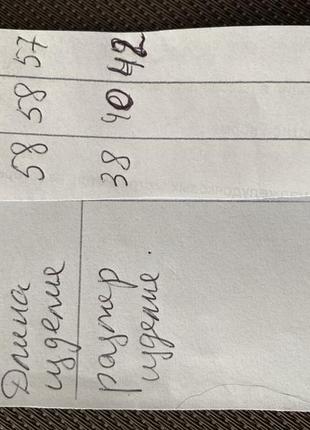 Длина 58 58 57
изделие
размер 38 40 42
изделие.